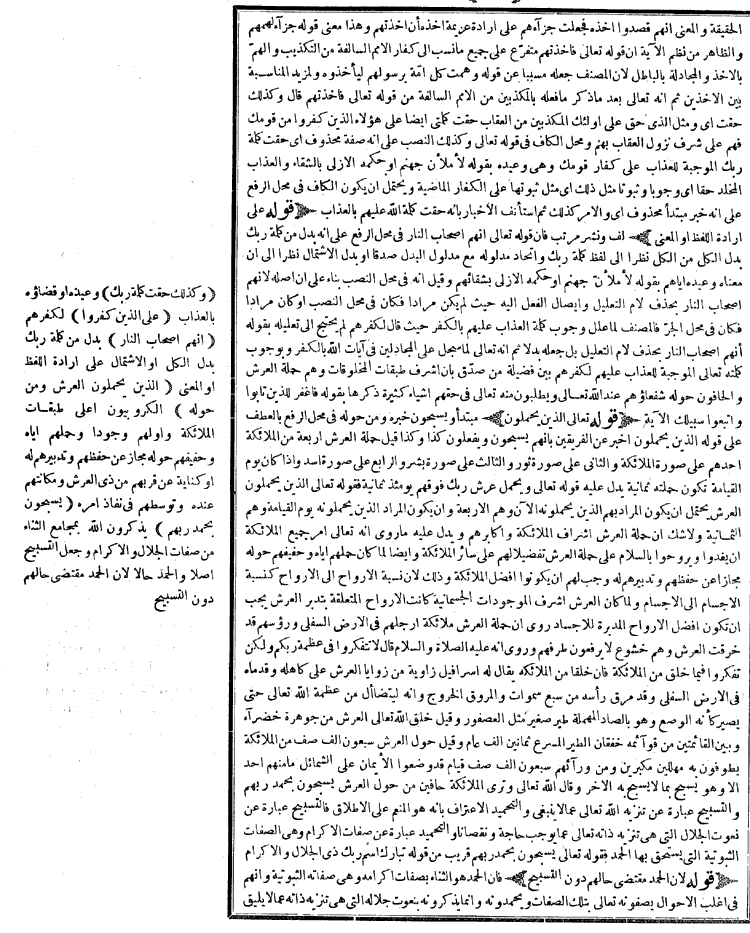 الحقيقة والمعنى انهم قصدوا اخذه فجعلت جزآءهم على ارادة عزيمة اخذه أن اخذتهم وهذا معنى قوله جزآء لهمهم
والظاهر من نظم الآية ان قوله تعالى فاخذتهم متفرع على جميع مانسب الى كفار الامم السالفة من التكذيب والهمّ
بالاخذ والمجادلة بالباطل لان المصنف جعله مسببا عن قوله وهمت كل امّة برسولهم ليأخذوه ولمزيد المناسبة
بين الاخذين ثم انه تعالى بعد ماذكر مافعله بالمكذبين من الامم السالفة من قوله تعالى فاخذتهم قال وكذلك
حقت اى ومثل الذى حق على اولئك المكذبين من العقاب حقت كلمتى ايضا على هؤلاء الذين كفروا من قومك
فهم على شرف نزول العقاب بهم ومحل الكاف فى قوله تعالى وكذلك النصب على انه صفة محذوف اى حقت كلمة
ربك الموجبة للعذاب على كفار قومك وهى وعيده بقوله لأملأن جهنم او حكمه الازلى بالشقاء والعذاب
المخلد حقا اى وجوبا وثبوتا مثل ذلك اى مثل ثبوتها على الكفار الماضية ويحتمل ان يكون الكاف فى محل الرفع
على انه خبر مبتدأ محذوف اى والامر كذلك ثم استأنف الاخبار بانه حقت كلمة الله عليهم بالعذاب ﴿قوله على
ارادة اللفظ او المعنى﴾ لف ونشر مرتب فان قوله تعالى انهم اصحاب النار فى محل الرفع على انه بدل من كلمة ربك
بدل الكل من الكل نظرا الى لفظ كلمة ربك واتحاد مدلوله مع مدلول البدل صدقا او بدل الاشتمال نظرا الى ان
معناه وعيده اياهم بقوله لأملأنّ جهنم او حكمه الازلى بشقائهم وقيل انه فى محل النصب بناء على ان اصله لانهم
اصحاب النار بحذف لام التعليل وايصال الفعل اليه حيث لم يكن مرادا فكان فى محل النصب او كان مرادا
فكان فى محل الجرّ فالمصنف لما علل وجوب كلمة العذاب عليهم بالكفر حيث قال لكفرهم لم يحتج الى تعليله بقوله
أنهم اصحاب النار بحذف لام التعليل بل جعله بدلا ثم انه تعالى لما سجل على المجادلين فى آيات الله بالكفر وبوجوب
كلمته تعالى الموجبة للعذاب عليهم لكفرهم بين فضيلة من صدّق بان اشرف طبقات المخلوقات وهم حملة العرش
والحافون حوله شفعاؤهم عند الله تعالى ويطلبون منه تعالى فى حقهم اشياء كثيرة ذكرها بقوله فاغفر للذين تابوا
واتبعوا سبيلك الآية ﴿قوله تعالى الذين يحملون﴾ مبتدأ ويسبحون خبره ومن حوله فى محل الرفع بالعطف
على قوله الذين يحملون اخبر عن الفريقين بانهم يسبحون ويفعلون كذا وكذا قيل حملة العرش اربعة من الملائكة
احدهم على صورة الملائكة والثانى على صورة ثور والثالث على صورة بشر والرابع على صورة اسد واذا كان يوم
القيامة تكون حملته ثمانية يدل عليه قوله تعالى ويحمل عرش ربك فوقهم يومئذ ثمانية فقوله تعالى الذين يحملون
العرش يحتمل ان يكون المراد بهم الذين يحملونه الآن وهم الاربعة وان يكون المراد الذين يحملونه يوم القيامة وهم
الثمانية ولاشك ان حملة العرش اشراف الملائكة واكابرهم ويدل عليه ماروى انه تعالى امر جميع الملائكة
ان يغدوا ويروحوا بالسلام على حملة العرش تفضيلا لهم على سائر الملائكة وايضا لما كان حملهم اياه وحفيفهم حوله
مجازا عن حفظهم وتدبيرهم له وجب لهم ان يكونوا افضل الملائكة وذلك لان نسبة الارواح الى الارواح كنسبة
الاجسام الى الاجسام ولما كان العرش اشرف الموجودات الجسمانية كانت الارواح المتعلقة بتدبر العرش يجب
ان تكون افضل الارواح المدبرة للاجساد روى ان حملة العرش ملائكة ارجلهم فى الارض السفلى ورؤسهم قد
خرقت العرش وهم خشوع لا يرفعون طرفهم وروى انه عليه الصلاة والسلام قال لا تتفكروا فى عظمة ربكم ولكن
تفكروا فيما خلق من الملائكة فان خلقا من الملائكة يقال له اسرافيل زاوية من زوايا العرش على كاهله وقدماه
فى الارض السفلى وقد مرق رأسه من سبع سموات والمروق الخروج وانه ليتضاأل من عظمة الله تعالى حتى
يصير كأنه الوصع وهو بالصاد المهملة طير صغير مثل العصفور وقيل خلق الله تعالى العرش من جوهرة خضرآء
وبين القائمتين من قوآئمه خفقان الطير المسرع ثمانين الف عام وقيل حول العرش سبعون الف صف من الملائكة
يطوفون به مهللين مكبرين ومن ورآئهم سبعون الف صف قيام قد وضعوا الأيمان على الشمائل مامنهم احد
الا وهو يسبح بما لا يسبح به الاخر وقال الله تعالى وترى الملائكة حافين من حول العرش يسبحون بحمد ربهم
والتسبيح عبارة عن تنزيه الله تعالى عما لا ينبغى والتحميد الاعتراف بانه هو المنعم على الاطلاق فالتسبيح عبارة عن
نعوت الجلال التى هى تنزيه ذاته تعالى عما يوجب حاجة ونقصانا والتحميد عبارة عن صفات الاكرام وهى الصفات
الثبوتية التى يستحق بها الحمد فقوله تعالى يسبحون بحمد ربهم قريب من قوله تبارك اسم ربك ذى الجلال والاكرام
﴿قوله لان الحمد مقتضى حالهم دون التسبيح﴾ فان الحمد هو الثناء بصفات اكرامه وهى صفاته الثبوتية وانهم
فى اغلب الاحوال يصفونه تعالى بتلك الصفات ويحمدونه وانما يذكرونه بنعوت جلاله التى هى تنزيه ذاته عما لا يليق
(وكذلك حقت كلمة ربك) وعيده او قضاؤه
بالعذاب (على الذين كفروا) لكفرهم
(انهم اصحاب النار) بدل من كلمة ربك
بدل الكل او الاشتمال على ارادة اللفظ
او المعنى (الذين يحملون العرش ومن
حوله) الكروبيون اعلى طبقات
الملائكة واولهم وجودا وحملهم اياه
وحفيفهم حوله مجاز عن حفظهم وتدبيرهم له
او كناية عن قربهم من ذى العرش ومكانتهم
عنده وتوسطهم فى نفاذ امره (يسبحون
بحمد ربهم) يذكرون الله بمجامع الثناء
من صفات الجلال والاكرام وجعل التسبيح
اصلا والحمد حالا لان الحمد مقتضى حالهم
دون التسبيح